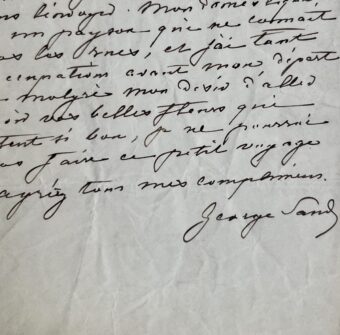 envoyés. Mon domestique,
un paysan qui ne connait
pas les rues, et j'ai tant
occupations avant mon départ
malgré mon désir d'aller
voir vos belles fleurs qui
sentent si bon, je ne pourrai
pas faire ce petit voyage
agréez tous mes complimens.
George Sand